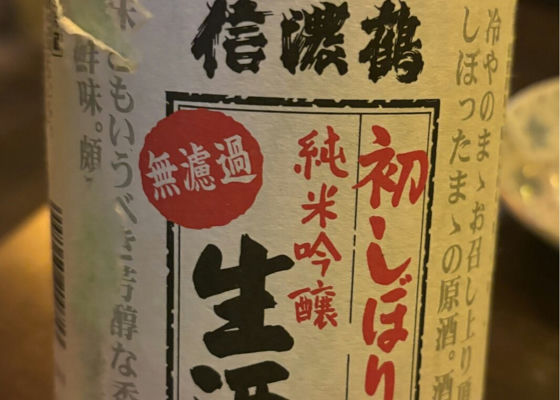 信濃鶴
冷やのまゝお召し上り頂
しぼったまゝの原酒。酒
初しぼり
純米吟醸
無濾過
生酒
米ともいうべき芳醇な香
鮮味。頗